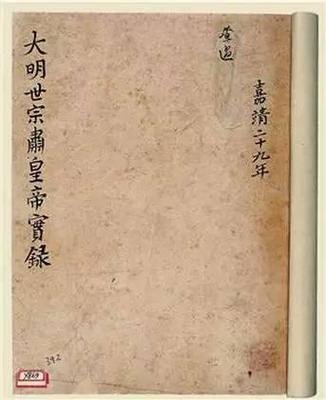 嘉靖二十九年
查過
大明世宗肅皇帝實錄
392